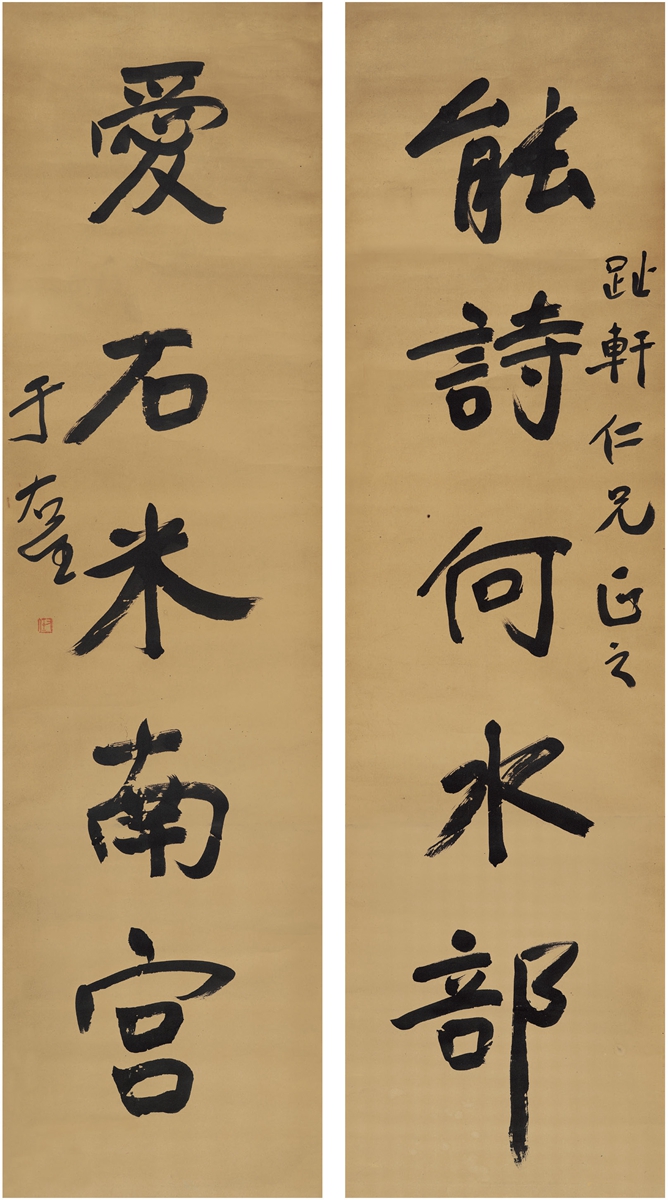 能詩何水部
趾軒仁兄正之
愛石米南宮
于右任